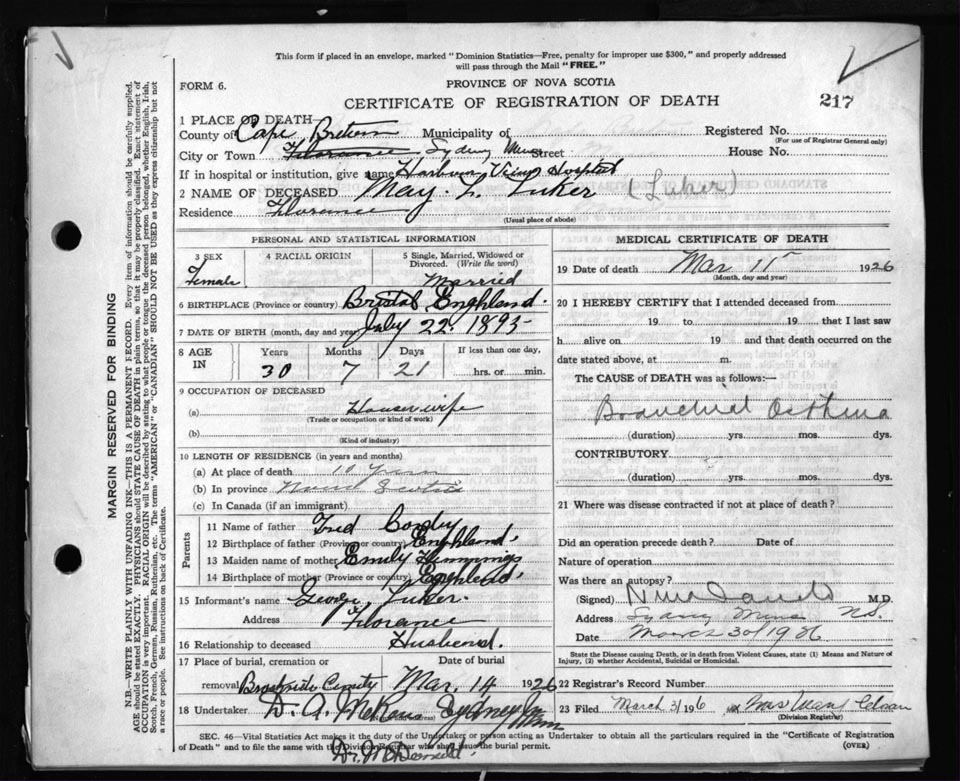 This form if placed in an envelope, marked "Dominion Statistics—Free, penalty for improper use $300," and properly addressed
will pass through the Mail "FREE."
FORM 6.
PROVINCE OF NOVA SCOTIA
CERTIFICATE OF REGISTRATION OF DEATH
217
1 PLACE OF DEATH
County of Cape Breton Municipality of Registered No.
(For use of Registrar General only)
City or Town Florence Sydney Mines Street House No.
If in hospital or institution, give name Harbour View Hospital
2 NAME OF DECEASED May. L. Luker (Luker)
Residence Florance
(Usual place of abode)
PERSONAL AND STATISTICAL INFORMATION
3 SEX Female
4 RACIAL ORIGIN
5 Single, Married, Widowed or
Divorced. (Write the word)
Married
6 BIRTHPLACE (Province or country) Bristol Enghland.
7 DATE OF BIRTH (month, day and year) July 22. 1895
8 AGE IN Years Months Days If less than one day,
30 7 21 hrs. or min.
9 OCCUPATION OF DECEASED
(a) Housewife
(Trade or occupation or kind of work)
(b)
(Kind of industry)
10 LENGTH OF RESIDENCE (in years and months)
(a) At place of death 10 Years
(b) In province Nova Scotia
(c) In Canada (if an immigrant)
Parents
11 Name of father Fred
12 Birthplace of father (Province or country) Enghland.
13 Maiden name of mother Emily
14 Birthplace of mother (Province or country) Enghland.
15 Informant's name George Luker.
Address Florance
16 Relationship to deceased Husbend.
17 Place of burial, cremation or
removal Brookside
Date of burial
Mar. 14 1926
18 Undertaker D. A. Sydney Mines
MEDICAL CERTIFICATE OF DEATH
19 Date of death Mar 11 1926
(Month, day and year)
20 I HEREBY CERTIFY that I attended deceased from
19 to 19 that I last saw
h alive on 19 and that death occurred on the
date stated above, at m.
The CAUSE of DEATH was as follows:—
Bronchial Asthma
(duration) yrs. mos. dys.
CONTRIBUTORY
(duration) yrs. mos. dys.
21 Where was disease contracted if not at place of death?
Did an operation precede death? Date of
Nature of operation
Was there an autopsy?
(Signed) M.D.
Address Sydney Mines N.S.
Date March 30/1926
State the Disease causing Death, or in death from Violent Causes, state (1) Means and Nature of
Injury, (2) whether Accidental, Suicidal or Homicidal.
22 Registrar's Record Number
23 Filed March 31
(Division Registrar)
SEC. 46—Vital Statistics Act makes it the duty of the Undertaker or person acting as Undertaker to obtain all the particulars required in the "Certificate of Registration
of Death" and to file the same with the Division Registrar who shall issue the burial permit.
(OVER)
MARGIN RESERVED FOR BINDING
N.B.—WRITE PLAINLY WITH UNFADING INK—THIS IS A PERMANENT RECORD. Every item of information should be carefully supplied.
AGE should be stated EXACTLY. PHYSICIANS should STATE CAUSE OF DEATH in plain terms, so that it may be properly classified. Exact statement of
OCCUPATION is very important. RACIAL ORIGIN will be described by stating to what people or tongue the deceased person belonged, whether English, Irish,
Scotch, French, German, Russian, Ruthenian, etc. The terms "AMERICAN" or "CANADIAN" SHOULD NOT BE USED as they express citizenship but not
a race or people. See instructions on back of Certificate.